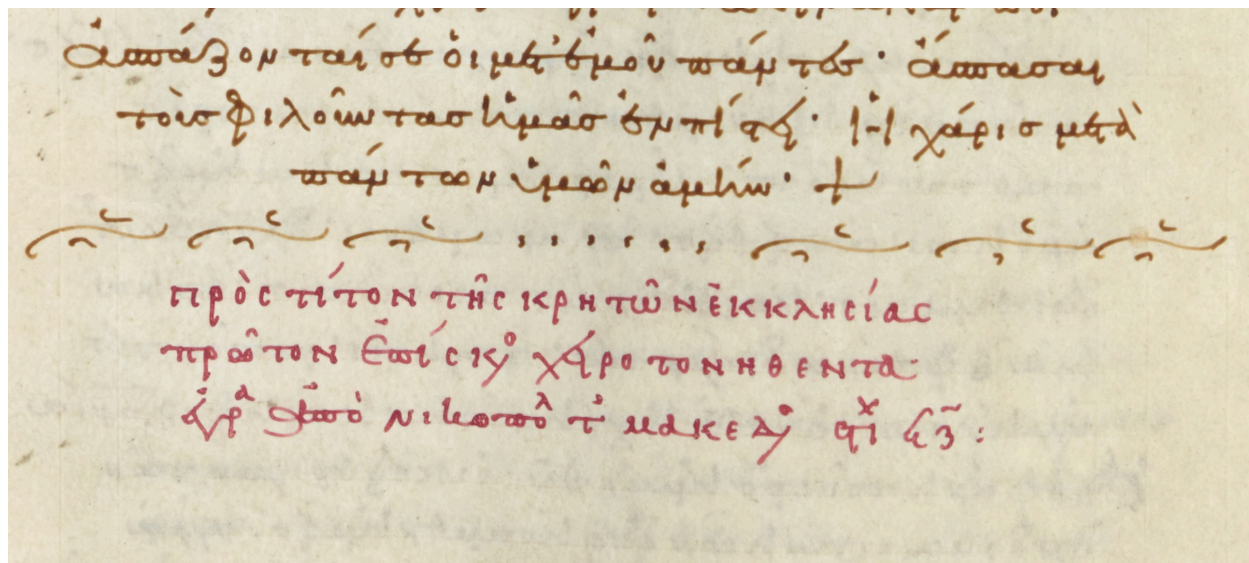 ἀσπάζονταί σε οἱ μετ' ἐμοῦ πάντες· ἄσπασαι
τοὺς φιλοῦντας ἡμᾶς ἐν πίστει· ἡ χάρις μετὰ
πάντων ὑμῶν ἀμήν· +
πρὸς τίτον τῆς κρητῶν ἐκκλησίας
πρῶτον ἐπίσκο χειροτονηθέντα
ἐγρα ἀπὸ νικοπολ τ μακεδο στι ϟζ :